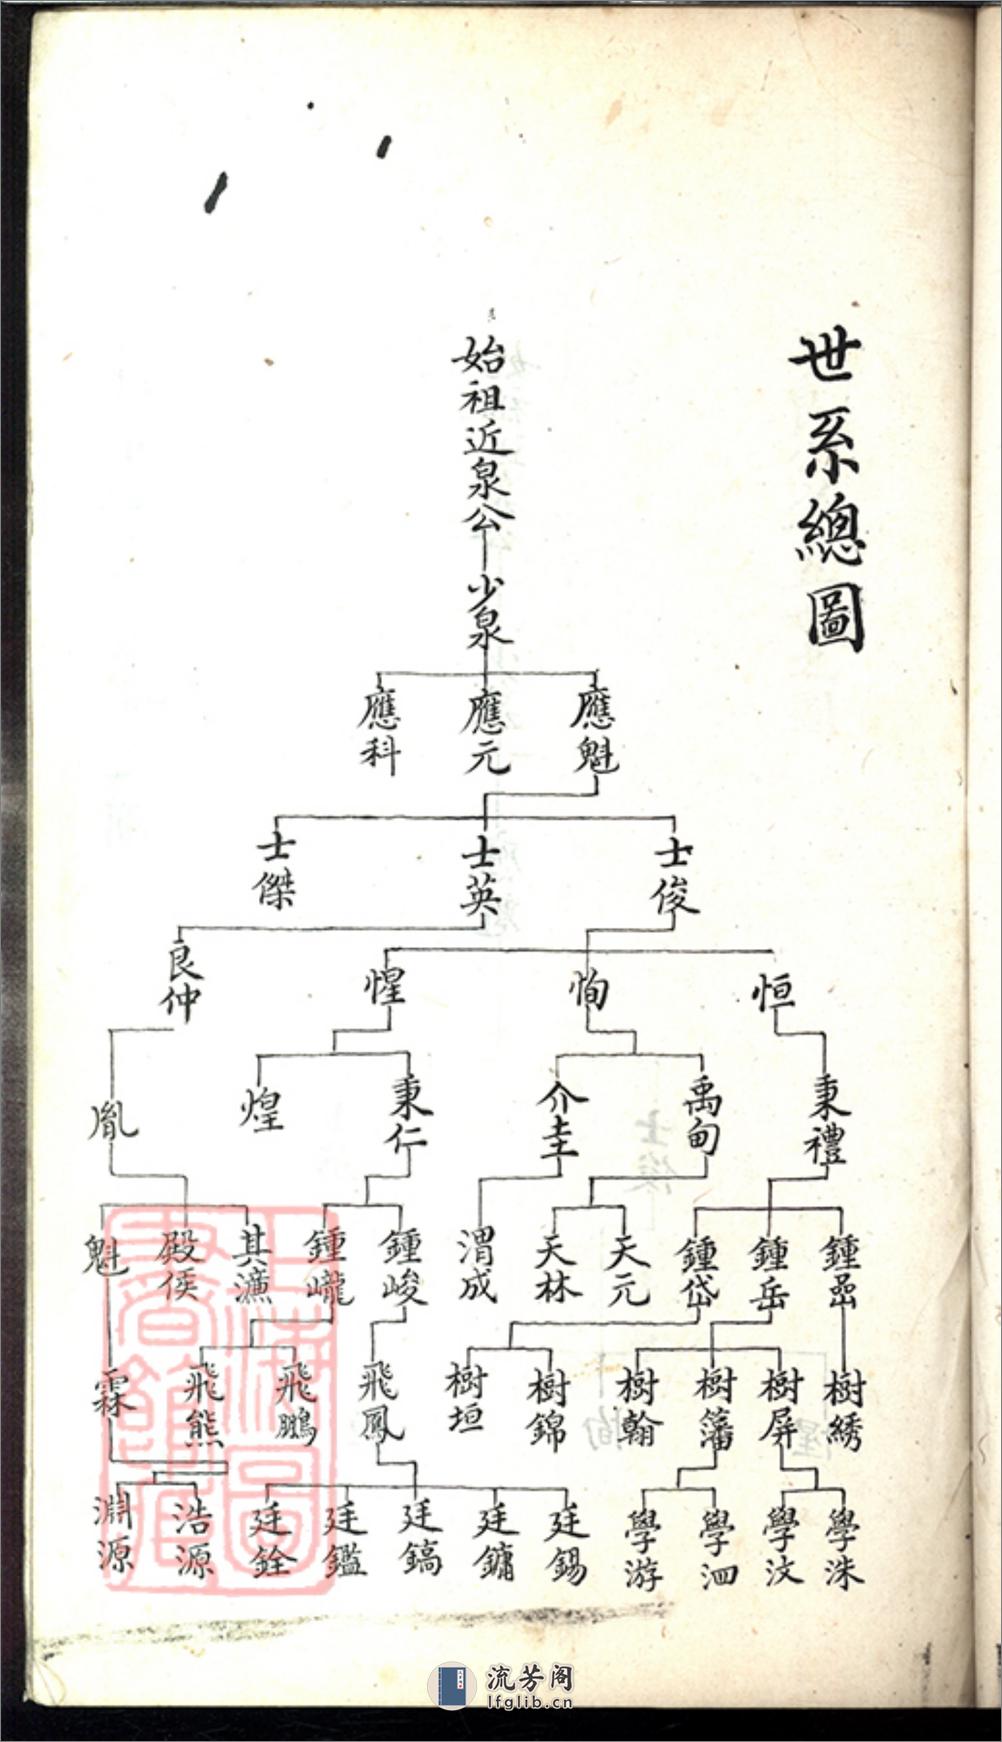 世系總圖
始祖近泉公
少泉
應魁
應元
應科
士俊
士英
士傑
恒
恂
惺
良仲
秉禮
禹甸
介圭
秉仁
煌
胤
鍾嵒
鍾岳
鍾岱
天元
天林
渭成
鍾峻
鍾巄
其濂
殿侯
魁
樹綉
樹屏
樹藩
樹翰
樹錦
樹垣
飛鳳
飛鵬
飛熊
霖
學洙
學汶
學泗
學游
廷錫
廷鏞
廷鎬
廷鑑
廷銓
浩源
淵源
上海圖書館藏
流芳阁
lfglib.cn